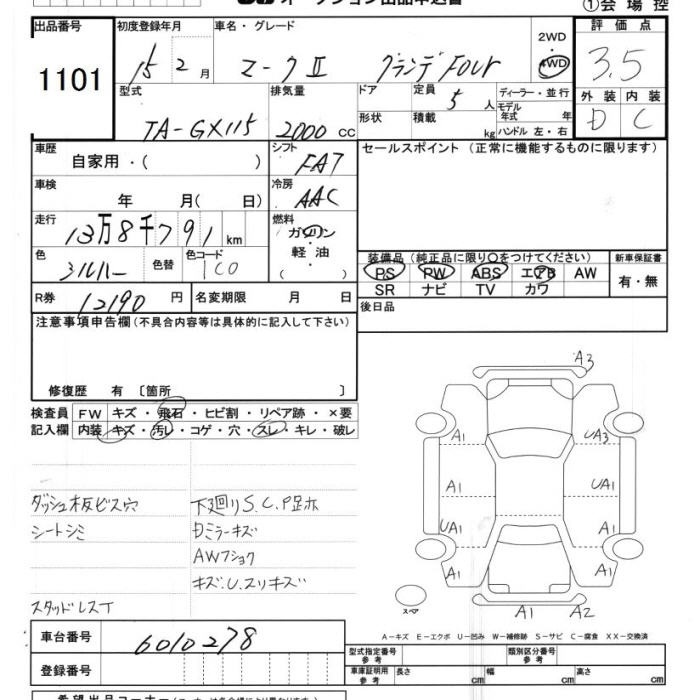 オークション出品申込書
①会場控
出品番号 初度登録年月 車名・グレード 2WD 評価点
1101 15 2月 マークII グランデFOUR 4WD 3.5
型式 排気量 ドア 定員 5人 ディーラー・並行 外装 内装
TA-GX115 2000cc 形状 積載 kg モデル年式 年 D C
ハンドル 左・右
車歴 シフト セールスポイント (正常に機能するものに限ります)
自家用・( ) FAT
車検 冷房
年 月( 日) AAC
走行 燃料
13万8千791km ガソリン
色 色替 色コード ・軽油 装備品(純正品に限り○をつけてください) 新車保証書
シルバー 1C0 ・( ) PS PW ABS エアB AW 有・無
SR ナビ TV カワ
R券 12190円 名変期限 月 日 後日品
注意事項申告欄(不具合内容等は具体的に記入して下さい)
修復歴 有 [箇所 ]
検査員 FW キズ・飛石・ヒビ割・リペア跡・×要
記入欄 内装 キズ・汚レ・コゲ・穴・スレ・キレ・破レ
A3
A1 UA3
A1 UA1
UA1 A1
A1 A1
スペア A1 A2
ダッシュ板ビス穴 下廻りS.C.P足ホ
シートシミ Dミラーキズ
AWフショク
キズ.U.スリキズ
スタッドレスT
A-キズ E-エクボ U-凹み W-補修跡 S-サビ C-腐食 XX-交換済
車台番号 6010278 型式指定番号 参考 類別区分番号 参考
登録番号 車庫証明用 参考 長さ cm 幅 cm 高さ cm